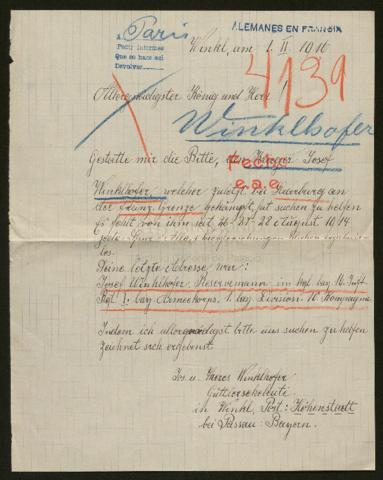 A Paris
Pedir informes
Que se haze asi
Devolver
ALEMANES EN FRANCIA
Winkl, am 1. II 1916
4139
Allergnädigster König und Herr!
Winklhofer
Gestatte mir die Bitte, den Krieger Josef
Fecho
e.a.e.
Winklhofer, welcher zuletzt bei Saarburg an
der Grenze gekämpft hat suchen zu helfen
Es fehlt von ihm seit 26-27-28 August 1914
jede Spur. Alle
los.
Seine letzte Adresse war:
Josef Winklhofer, Reservemann im kgl. bay. 16. Inft.
Rgt. 1. bay. Armeekorps. 1. bay. Division. 10. Kompagnie
Indem ich allergnädigst bitte uns suchen zu helfen
zeichnet sich ergebenst
Jos. u. Theres Winklhofer
Gütlerseheleute
in Winkl, Post: Höhenstadt
bei Passau. Bayern.